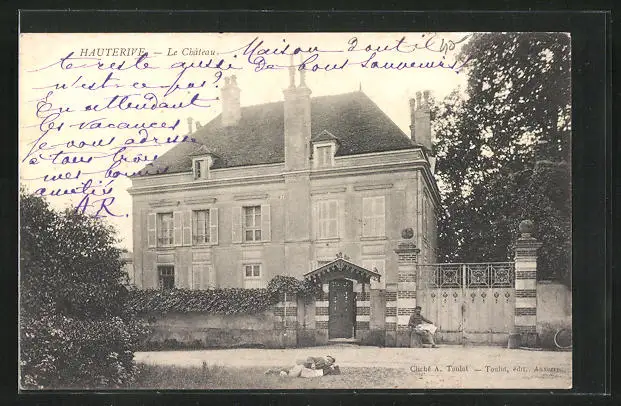 HAUTERIVE. — Le Château.
Maison dont il
te reste aussi de bons souvenirs
n'est-ce pas?
En attendant
les vacances
je vous adresse
à tous trois
mes bonnes
amitiés
A R.
Cliché A. Toulot — Toulot, édit., Auxerre.